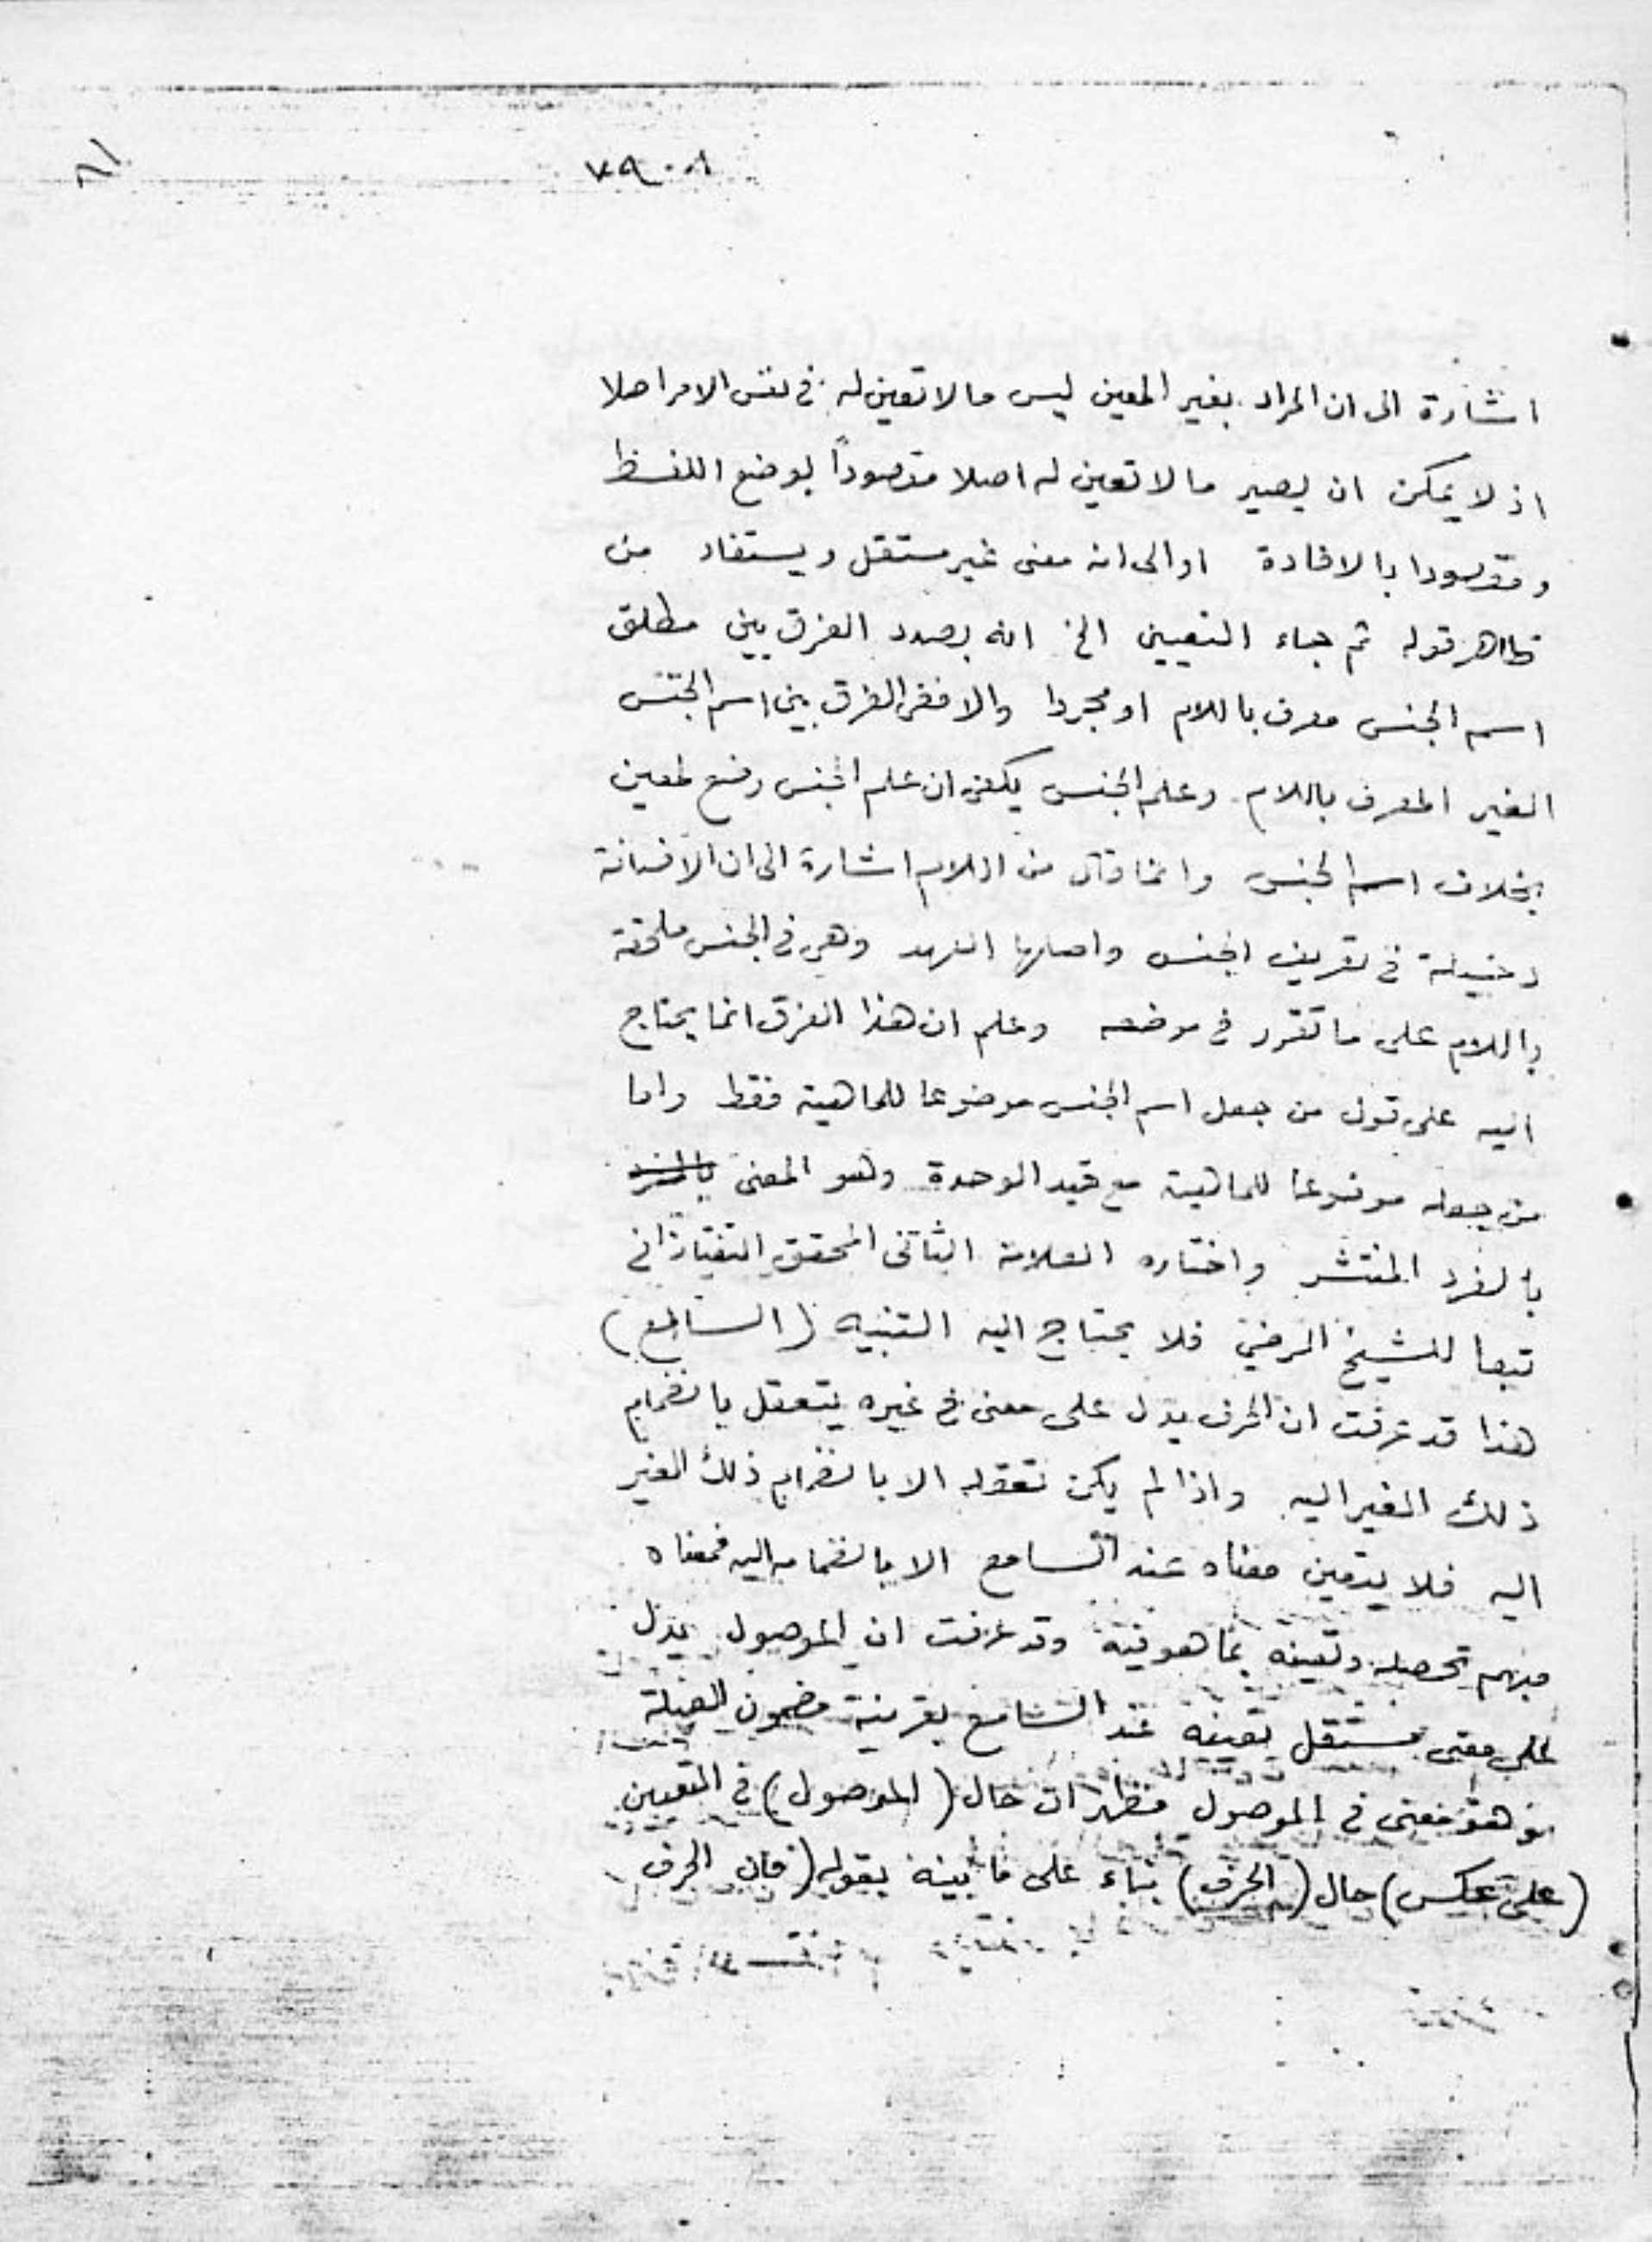 اشارة الى ان المراد بغير المعين ليس ما لا تعين له في نفس الامر اصلا
اذ لا يمكن ان يصير ما لا تعين له اصلا مقصوداً بوضع اللفظ
ومقصودا بالافادة او الى انه معنى غير مستقل ويستفاد من
ظاهر قوله ثم جاء التعيين الخ انه بصدد الفرق بين مطلق
اسم الجنس معرف باللام او مجردا والا ففى الفرق بين اسم الجنس
الغير المعرف باللام وعلم الجنس يكفى ان علم الجنس وضع لمعين
بخلاف اسم الجنس وانما قال من اللام اشارة الى ان الاضافة
دخيلة في تعريف الجنس واصلها العهد وهي في الجنس ملحقة
باللام على ما تقرر في موضعه وعلم ان هذا الفرق انما يحتاج
اليه على قول من جعل اسم الجنس موضوعا للماهية فقط واما
من جعله موضوعا للماهية مع قيد الوحدة وهو المعنى
بالفرد المنتشر واختاره العلامة الثاني المحقق التفتازاني
تبعا للشيخ الرضي فلا يحتاج اليه التنبيه (السابع)
هذا قد عرفت ان الحرف يدل على معنى في غيره يتعقل بانضمام
ذلك الغير اليه واذا لم يكن تعقله الا بانضمام ذلك الغير
اليه فلا يتعين معناه عند السامع الا بانضمامه اليه فمعناه
مبهم تحصله وتعينه بما هو فيه وقد عرفت ان الموصول يدل
على معنى مستقل تعينه عند السامع بقرينة مضمون الصلة
وهو معنى في الموصول فظهر ان حال (الموصول) في التعيين
(على عكس) حال (الحرف) بناء على ما بينه بقوله (فان الحرف